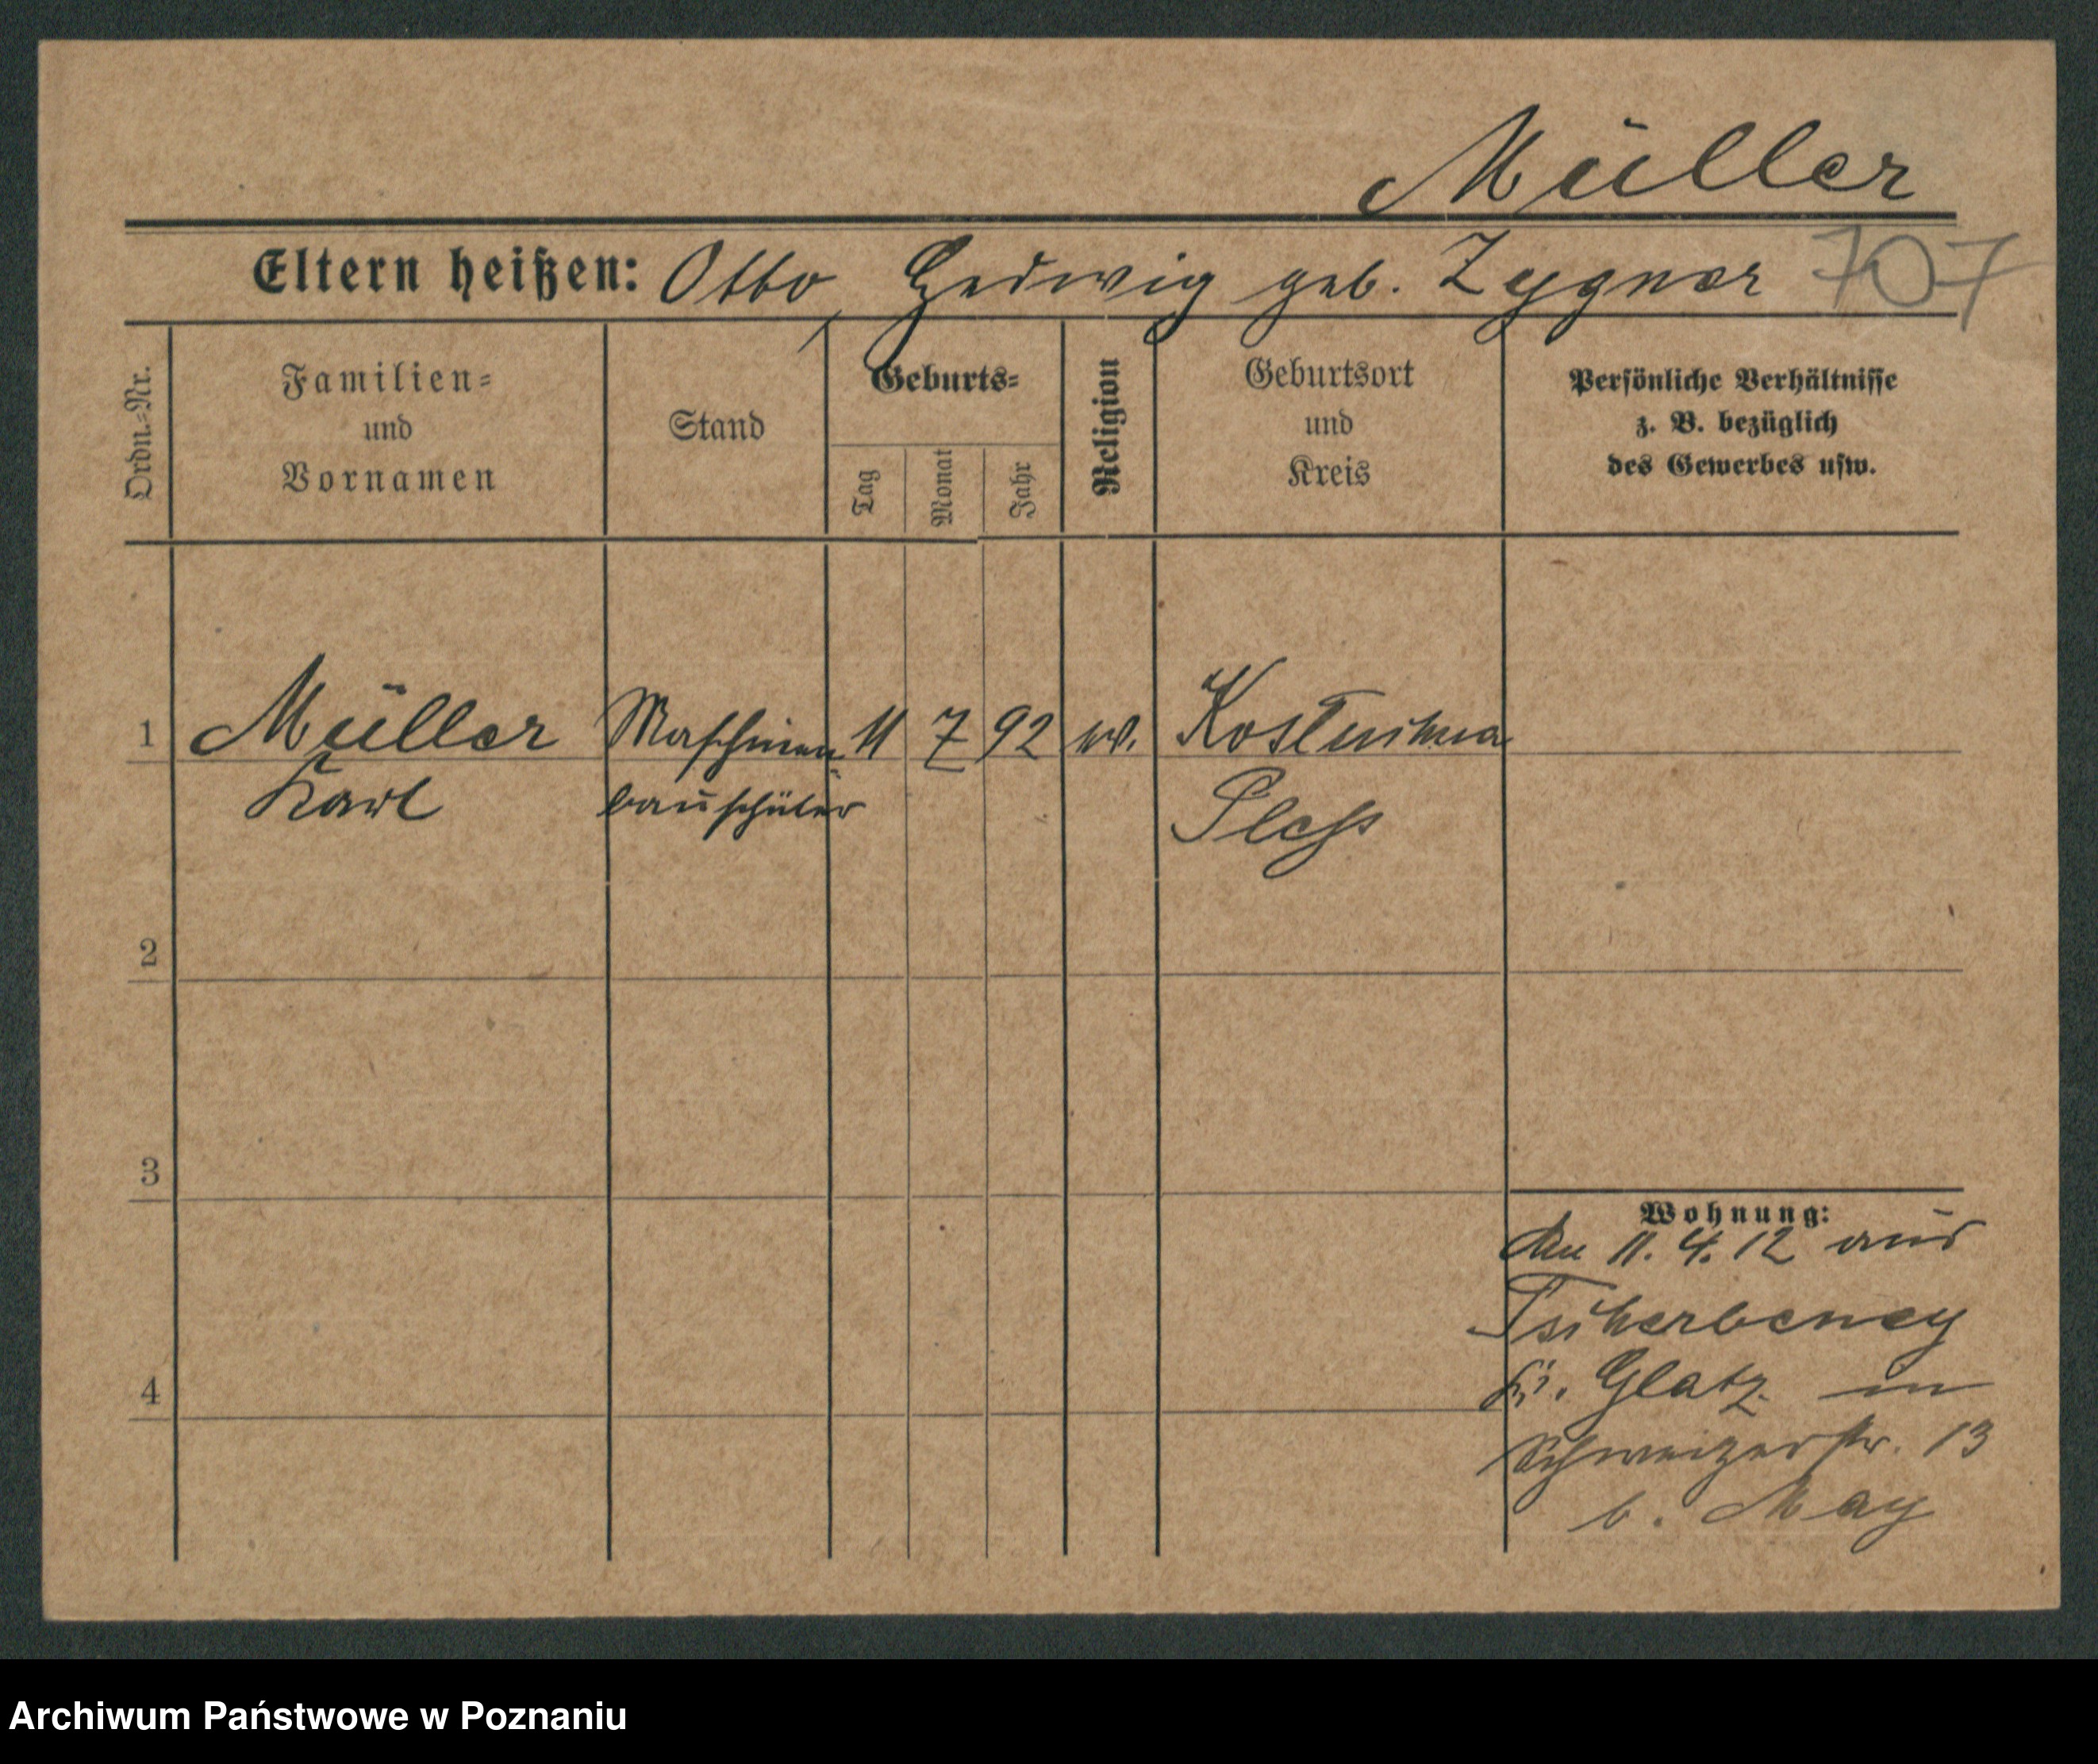 Müller
Eltern heißen: Otto, Hedwig geb. Zygner 707
Ordn.=Nr.
Familien=
und
Vornamen
Stand
Geburts=
Tag
Monat
Jahr
Religion
Geburtsort
und
Kreis
Persönliche Verhältnisse
z. B. bezüglich
des Gewerbes usw.
1 Müller Maschinen 11 7 92 Kostuchna
Karl bauschüler Pless
2
3
4
Wohnung:
Am 11. 4. 12 aus
Tscherbeney
Kr. Glatz in
Schweizerstr. 13
b. May
Archiwum Państwowe w Poznaniu